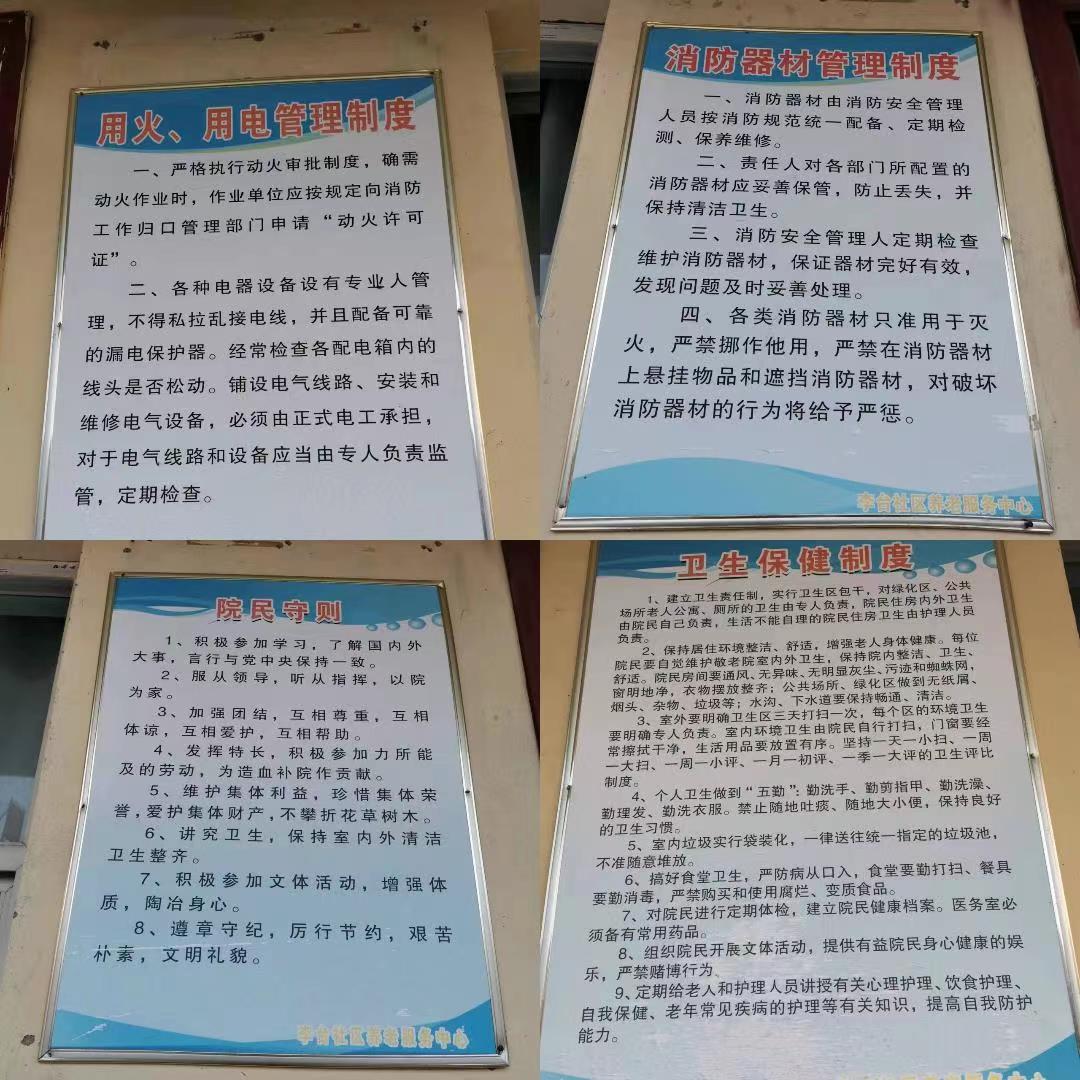 用火、用电管理制度
一、严格执行动火审批制度，确需
动火作业时，作业单位应按规定向消防
工作归口管理部门申请“动火许可
证”。
二、各种电器设备设有专业人管
理，不得私拉乱接电线，并且配备可靠
的漏电保护器。经常检查各配电箱内的
线头是否松动。铺设电气线路、安装和
维修电气设备，必须由正式电工承担，
对于电气线路和设备应当由专人负责监
管，定期检查。
消防器材管理制度
一、消防器材由消防安全管理
人员按消防规范统一配备、定期检
测、保养维修。
二、责任人对各部门所配置的
消防器材应妥善保管，防止丢失，并
保持清洁卫生。
三、消防安全管理人定期检查
维护消防器材，保证器材完好有效，
发现问题及时妥善处理。
四、各类消防器材只准用于灭
火，严禁挪作他用，严禁在消防器材
上悬挂物品和遮挡消防器材，对破坏
消防器材的行为将给予严惩。
李台社区养老服务中心
院民守则
1、积极参加学习，了解国内外
大事，言行与党中央保持一致。
2、服从领导，听从指挥，以院
为家。
3、加强团结，互相尊重，互相
体谅，互相爱护，互相帮助。
4、发挥特长，积极参加力所能
及的劳动，为造血补院作贡献。
5、维护集体利益，珍惜集体荣
誉，爱护集体财产，不攀折花草树木。
6、讲究卫生，保持室内外清洁
卫生整齐。
7、积极参加文体活动，增强体
质，陶冶身心。
8、遵章守纪，厉行节约，艰苦
朴素，文明礼貌。
李台社区养老服务中心
卫生保健制度
1、建立卫生责任制，实行卫生区包干，对绿化区、公共
场所老人公寓、厕所的卫生由专人负责，院民住房内外卫生
由院民自己负责，生活不能自理的院民住房卫生由护理人员
负责。
2、保持居住环境整洁、舒适，增强老人身体健康。每位
院民要自觉维护敬老院室内外卫生，保持院内整洁、卫生、
舒适。院民房间要通风、无异味、无明显灰尘、污迹和蜘蛛网，
窗明地净，衣物摆放整齐；公共场所、绿化区做到无纸屑、
烟头、杂物、垃圾等；水沟、下水道要保持畅通、清洁。
3、室外要明确卫生区三天打扫一次，每个区的环境卫生
要明确专人负责。室内环境卫生由院民自行打扫，门窗要经
常擦拭干净，生活用品要放置有序。坚持一天一小扫、一周
一大扫、一周一小评、一月一初评、一季一大评的卫生评比
制度。
4、个人卫生做到“五勤”：勤洗手、勤剪指甲、勤洗澡、
勤理发、勤洗衣服。禁止随地吐痰、随地大小便，保持良好
的卫生习惯。
5、室内垃圾实行袋装化，一律送往统一指定的垃圾池，
不准随意堆放。
6、搞好食堂卫生，严防病从口入，食堂要勤打扫、餐具
要勤消毒，严禁购买和使用腐烂、变质食品。
7、对院民进行定期体检，建立院民健康档案。医务室必
须备有常用药品。
8、组织院民开展文体活动，提供有益院民身心健康的娱
乐，严禁赌博行为、
9、定期给老人和护理人员讲授有关心理护理、饮食护理、
自我保健、老年常见疾病的护理等有关知识，提高自我防护
能力。
李台社区养老服务中心